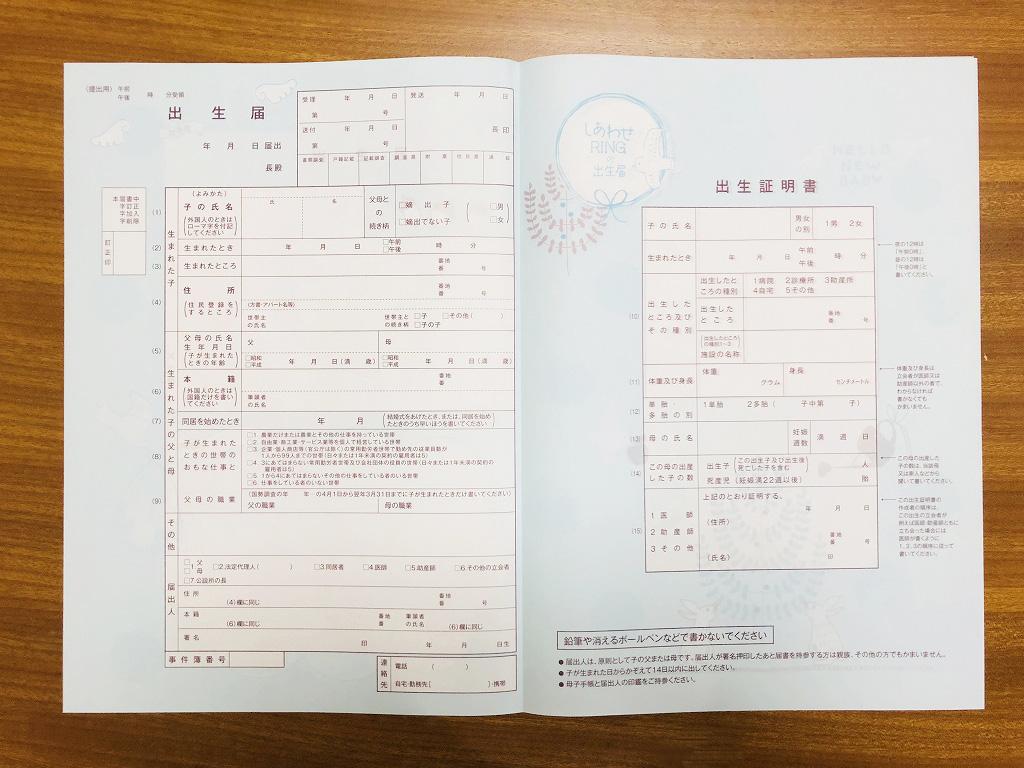 (提出用) 午前 時 分受領
午後
出生届
年 月 日 届出
長殿
受理 年 月 日
第 号
送付 年 月 日
第 号
発送 年 月 日
長印
書類調査 戸籍記載 記載調査 調査票 附票 住民票 通知
本届書中
字訂正
字加入
字削除
訂正印
生まれた子
(1)
(よみかた)
子の氏名
(外国人のときは
ローマ字を付記
してください)
氏 名
父母と
の
続き柄
□嫡出子
□嫡出でない子
(□男
□女)
(2) 生まれたとき 年 月 日 □午前 時 分
□午後
(3) 生まれたところ 番地
番 号
(4) 住所
(住民登録を
するところ)
番地
番 号
(方書・アパート名等)
世帯主
の氏名
世帯主と
の続き柄
□子 □その他( )
□子の子
生まれた子の父と母
(5) 父母の氏名
生年月日
(子が生まれた
ときの年齢)
父 母
□昭和 年 月 日(満 歳) □昭和 年 月 日(満 歳)
□平成 □平成
(6) 本籍
(外国人のときは
国籍だけを書い
てください)
番地
番 号
筆頭者
の氏名
(7) 同居を始めたとき 年 月 (結婚式をあげたとき、または、同居を始め
たときのうち早いほうを書いてください)
(8) 子が生まれた
ときの世帯の
おもな仕事と
□1.農業だけまたは農業とその他の仕事を持っている世帯
□2.自由業・商工業・サービス業等を個人で経営している世帯
□3.企業・個人商店等(官公庁は除く)の常用勤労者世帯で勤め先の従業者数が
1人から99人までの世帯(日々または1年未満の契約の雇用者は5)
□4.3にあてはまらない常用勤労者世帯及び会社団体の役員の世帯(日々または1年未満の契約の
雇用者は5)
□5.1から4にあてはまらないその他の仕事をしている者のいる世帯
□6.仕事をしている者のいない世帯
(9) 父母の職業
(国勢調査の年 年 の4月1日から翌年3月31日までに子が生まれたときだけ書いてください)
父の職業 母の職業
その他
届出人
□1.父
□ 母
□2.法定代理人( ) □3.同居者 □4.医師 □5.助産師 □6.その他の立会者
□7.公設所の長
住所
(4)欄に同じ
番地
番 号
本籍
(6)欄に同じ
番地
番
筆頭者
の氏名
(6)欄に同じ
署名 印 年 月 日生
事件簿番号
連絡先
電話 ( )
自宅・勤務先[ ]・携帯
しあわせ
RING
の
出生届
HELLO
NEW
BABY
出生証明書
子の氏名 男女
の別 1男 2女
生まれたとき 年 月 日 午前 時 分
午後
(10) 出生した
ところ及び
その種別
出生したと
ころの種別
1病院 2診療所 3助産所
4自宅 5その他
出生した
ところ
番地
番 号
(出生したところ
の種別1~3)
施設の名称
(11) 体重及び身長 体重 グラム 身長 センチメートル
(12) 単胎・
多胎の別
1単胎 2多胎( 子中第 子)
(13) 母の氏名 妊娠
週数 満 週 日
(14) この母の出産
した子の数
出生子(この出生子及び出生後
死亡した子を含む) 人
死産児(妊娠満22週以後) 胎
(15) 1医師
2助産師
3その他
上記のとおり証明する。
年 月 日
(住所)
番地
番 号
(氏名) 印
夜の12時は
「午前0時」
昼の12時は
「午後0時」と
書いてください。
体重及び身長は
立会者が医師又は
助産師以外の者で、
わからなければ
書かなくても
かまいません。
この母の出産した
子の数は、当該母
又は家人などから
聞いて書いてください。
この出生証明書の
作成者の順序は、
この出生の立会者が
例えば医師・助産師ともに
立ち会った場合には
医師が書くように
1、2、3の順序に従って
書いてください。
鉛筆や消えるボールペンなどで書かないでください
● 届出人は、原則として子の父または母です。届出人が署名押印したあと届書を持参する方は親族、その他の方でもかまいません。
● 子が生まれた日からかぞえて14日以内に出してください。
● 母子手帳と届出人の印鑑をご持参ください。